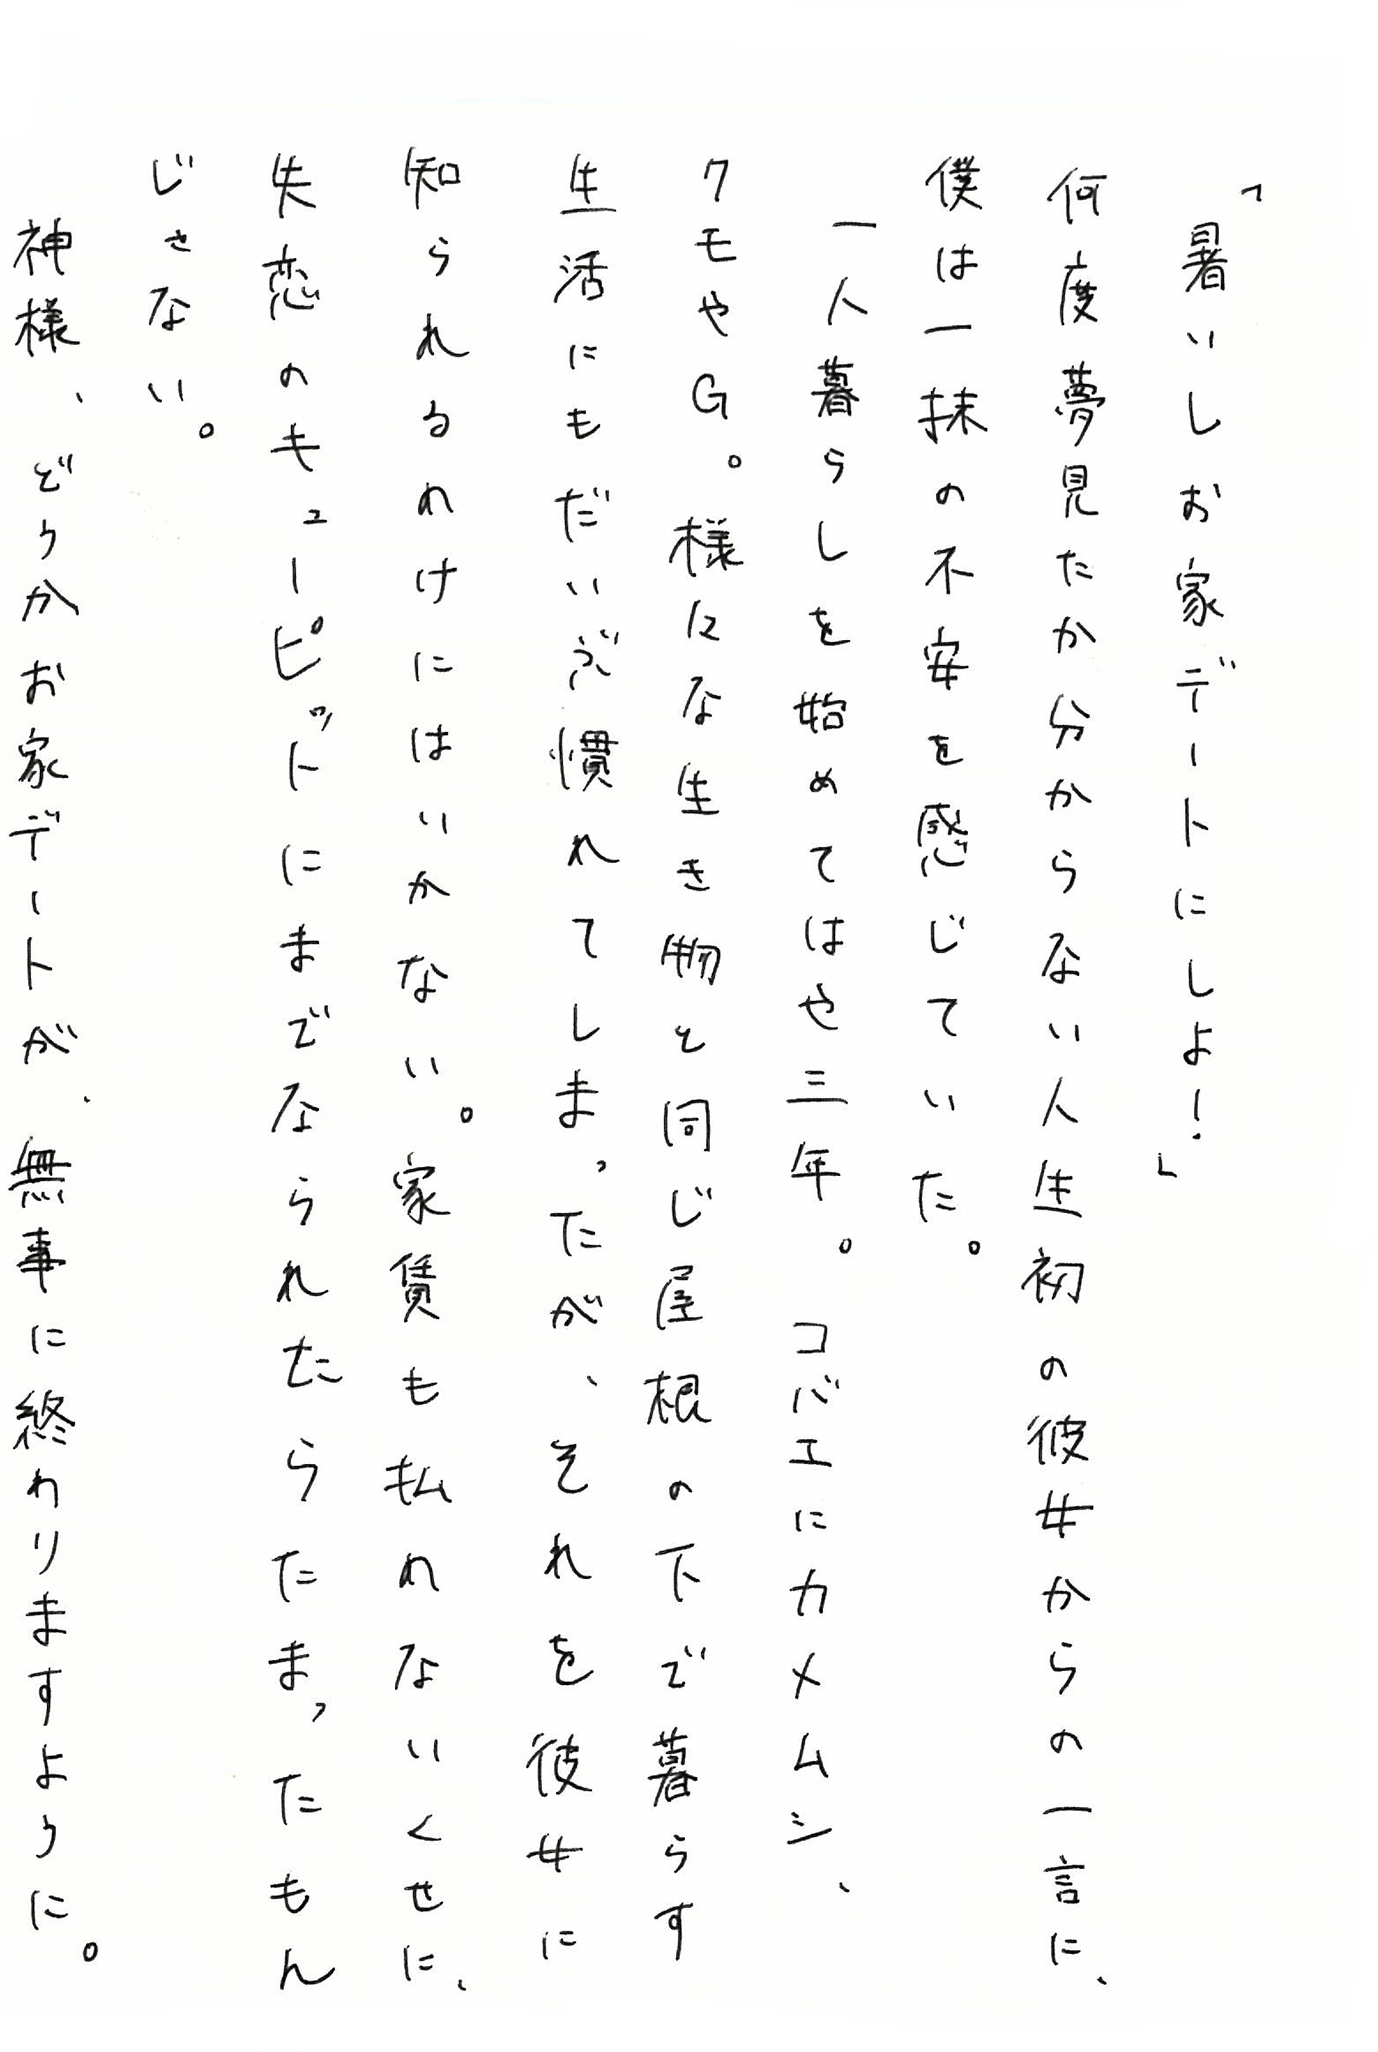 「暑いしお家デートにしよ！」
何度夢見たか分からない人生初の彼女からの一言に、
僕は一抹の不安を感じていた。
一人暮らしを始めてはや三年。コバエにカメムシ、
クモやG。様々な生き物と同じ屋根の下で暮らす
生活にもだいぶ慣れてしまったが、それを彼女に
知られるわけにはいかない。家賃も払わないくせに、
失恋のキューピッドにまでなられたらたまったもん
じゃない。
神様、どうかお家デートが、無事に終わりますように。